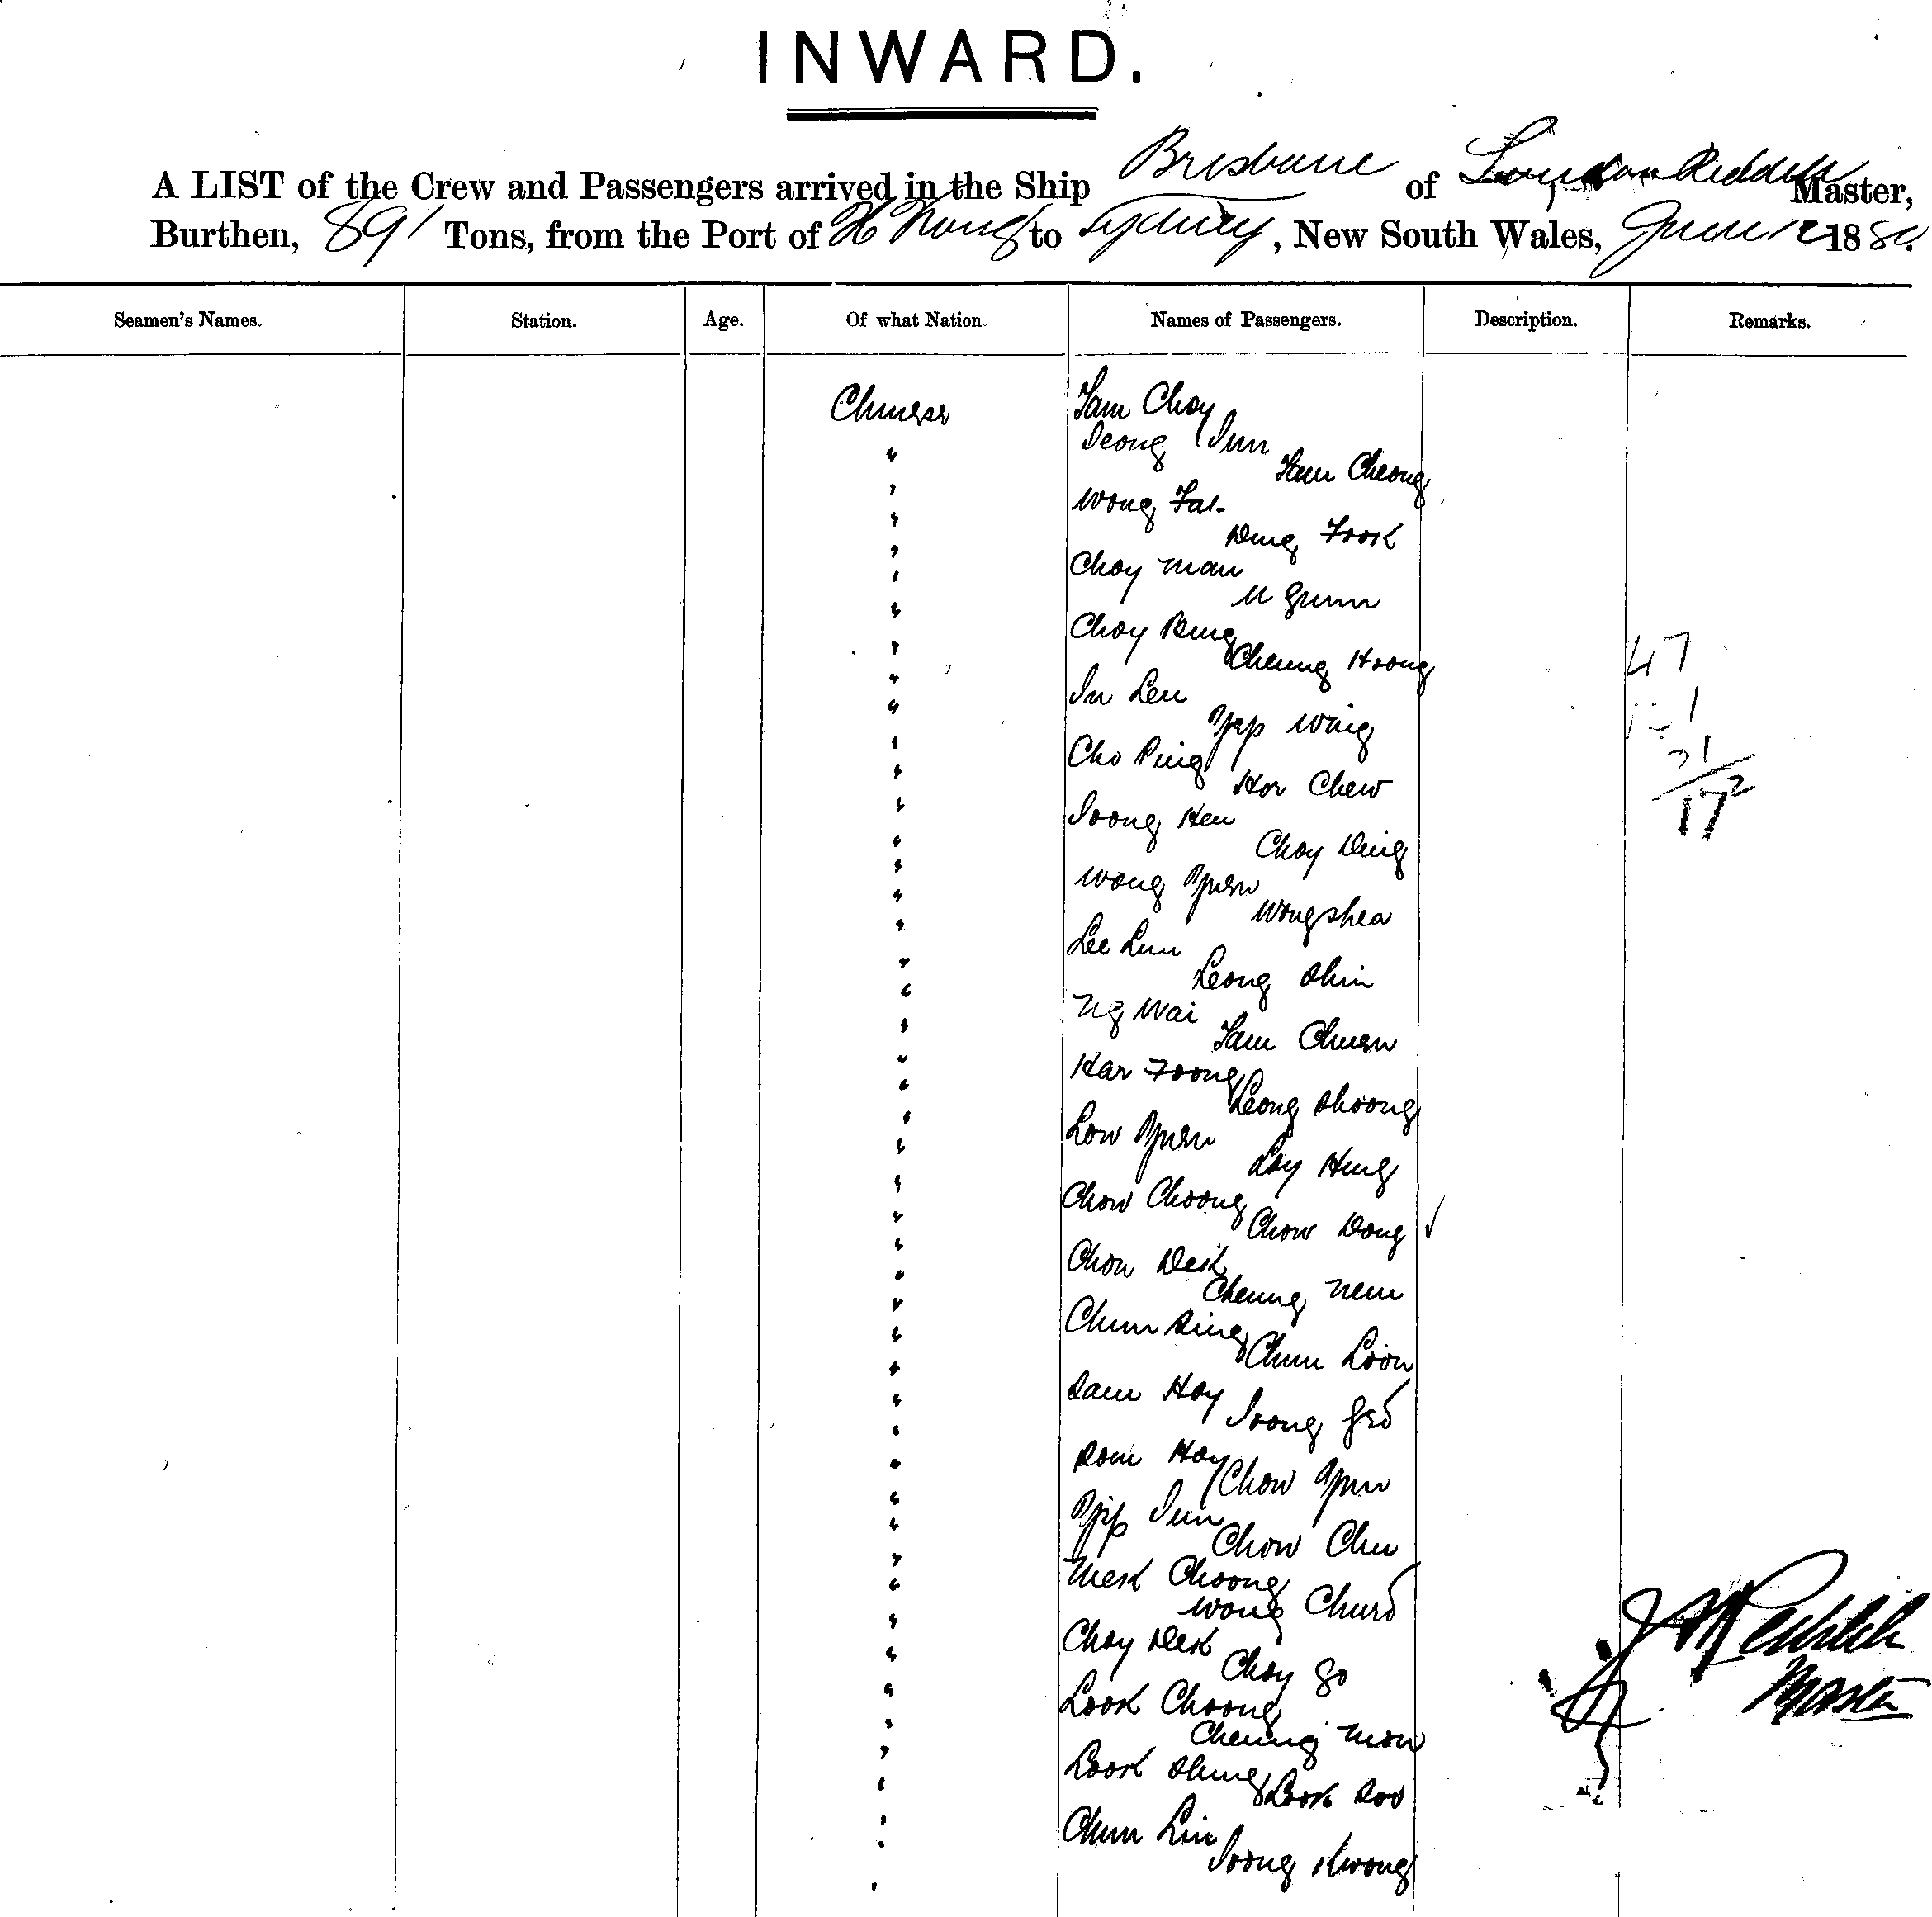 INWARD.
A LIST of the Crew and Passengers arrived in the Ship Brisbane of London Reddell Master,
Burthen, 891 Tons, from the Port of H Kong to Sydney, New South Wales, June 12 1880.
Seamen's Names. Station. Age. Of what Nation. Names of Passengers. Description. Remarks.
Chinese Tam Choy
Seong Sun
Tam Cheong
Wong Fat
Fook
Choy Man
U Gunn
Choy
Cheung Hoong
Lee
Yep Wing
Cho Ping
Hor Chew
Soong Hee
Choy
Wong Yuen
Wong Shea
Lee Lun
Leong Shin
Ng Wai
Tam Chuen
Kar Foong
Leong Shoong
Low Yuen
Loy Hung
Chow Choong
Chow Dong ✓
Chow
Cheung New
Chun
Chun Loon
Sam Hoy
Soong
Som Hoy
Chow Yun
Yip Sun
Chow Chu
Mesk Choong
Wong
Choy
Choy Go
Look Choong
Cheung Mow
Look Shung
Look Soo
Chun Lin
Soong Kwong
47
1
172
Reddell
Master